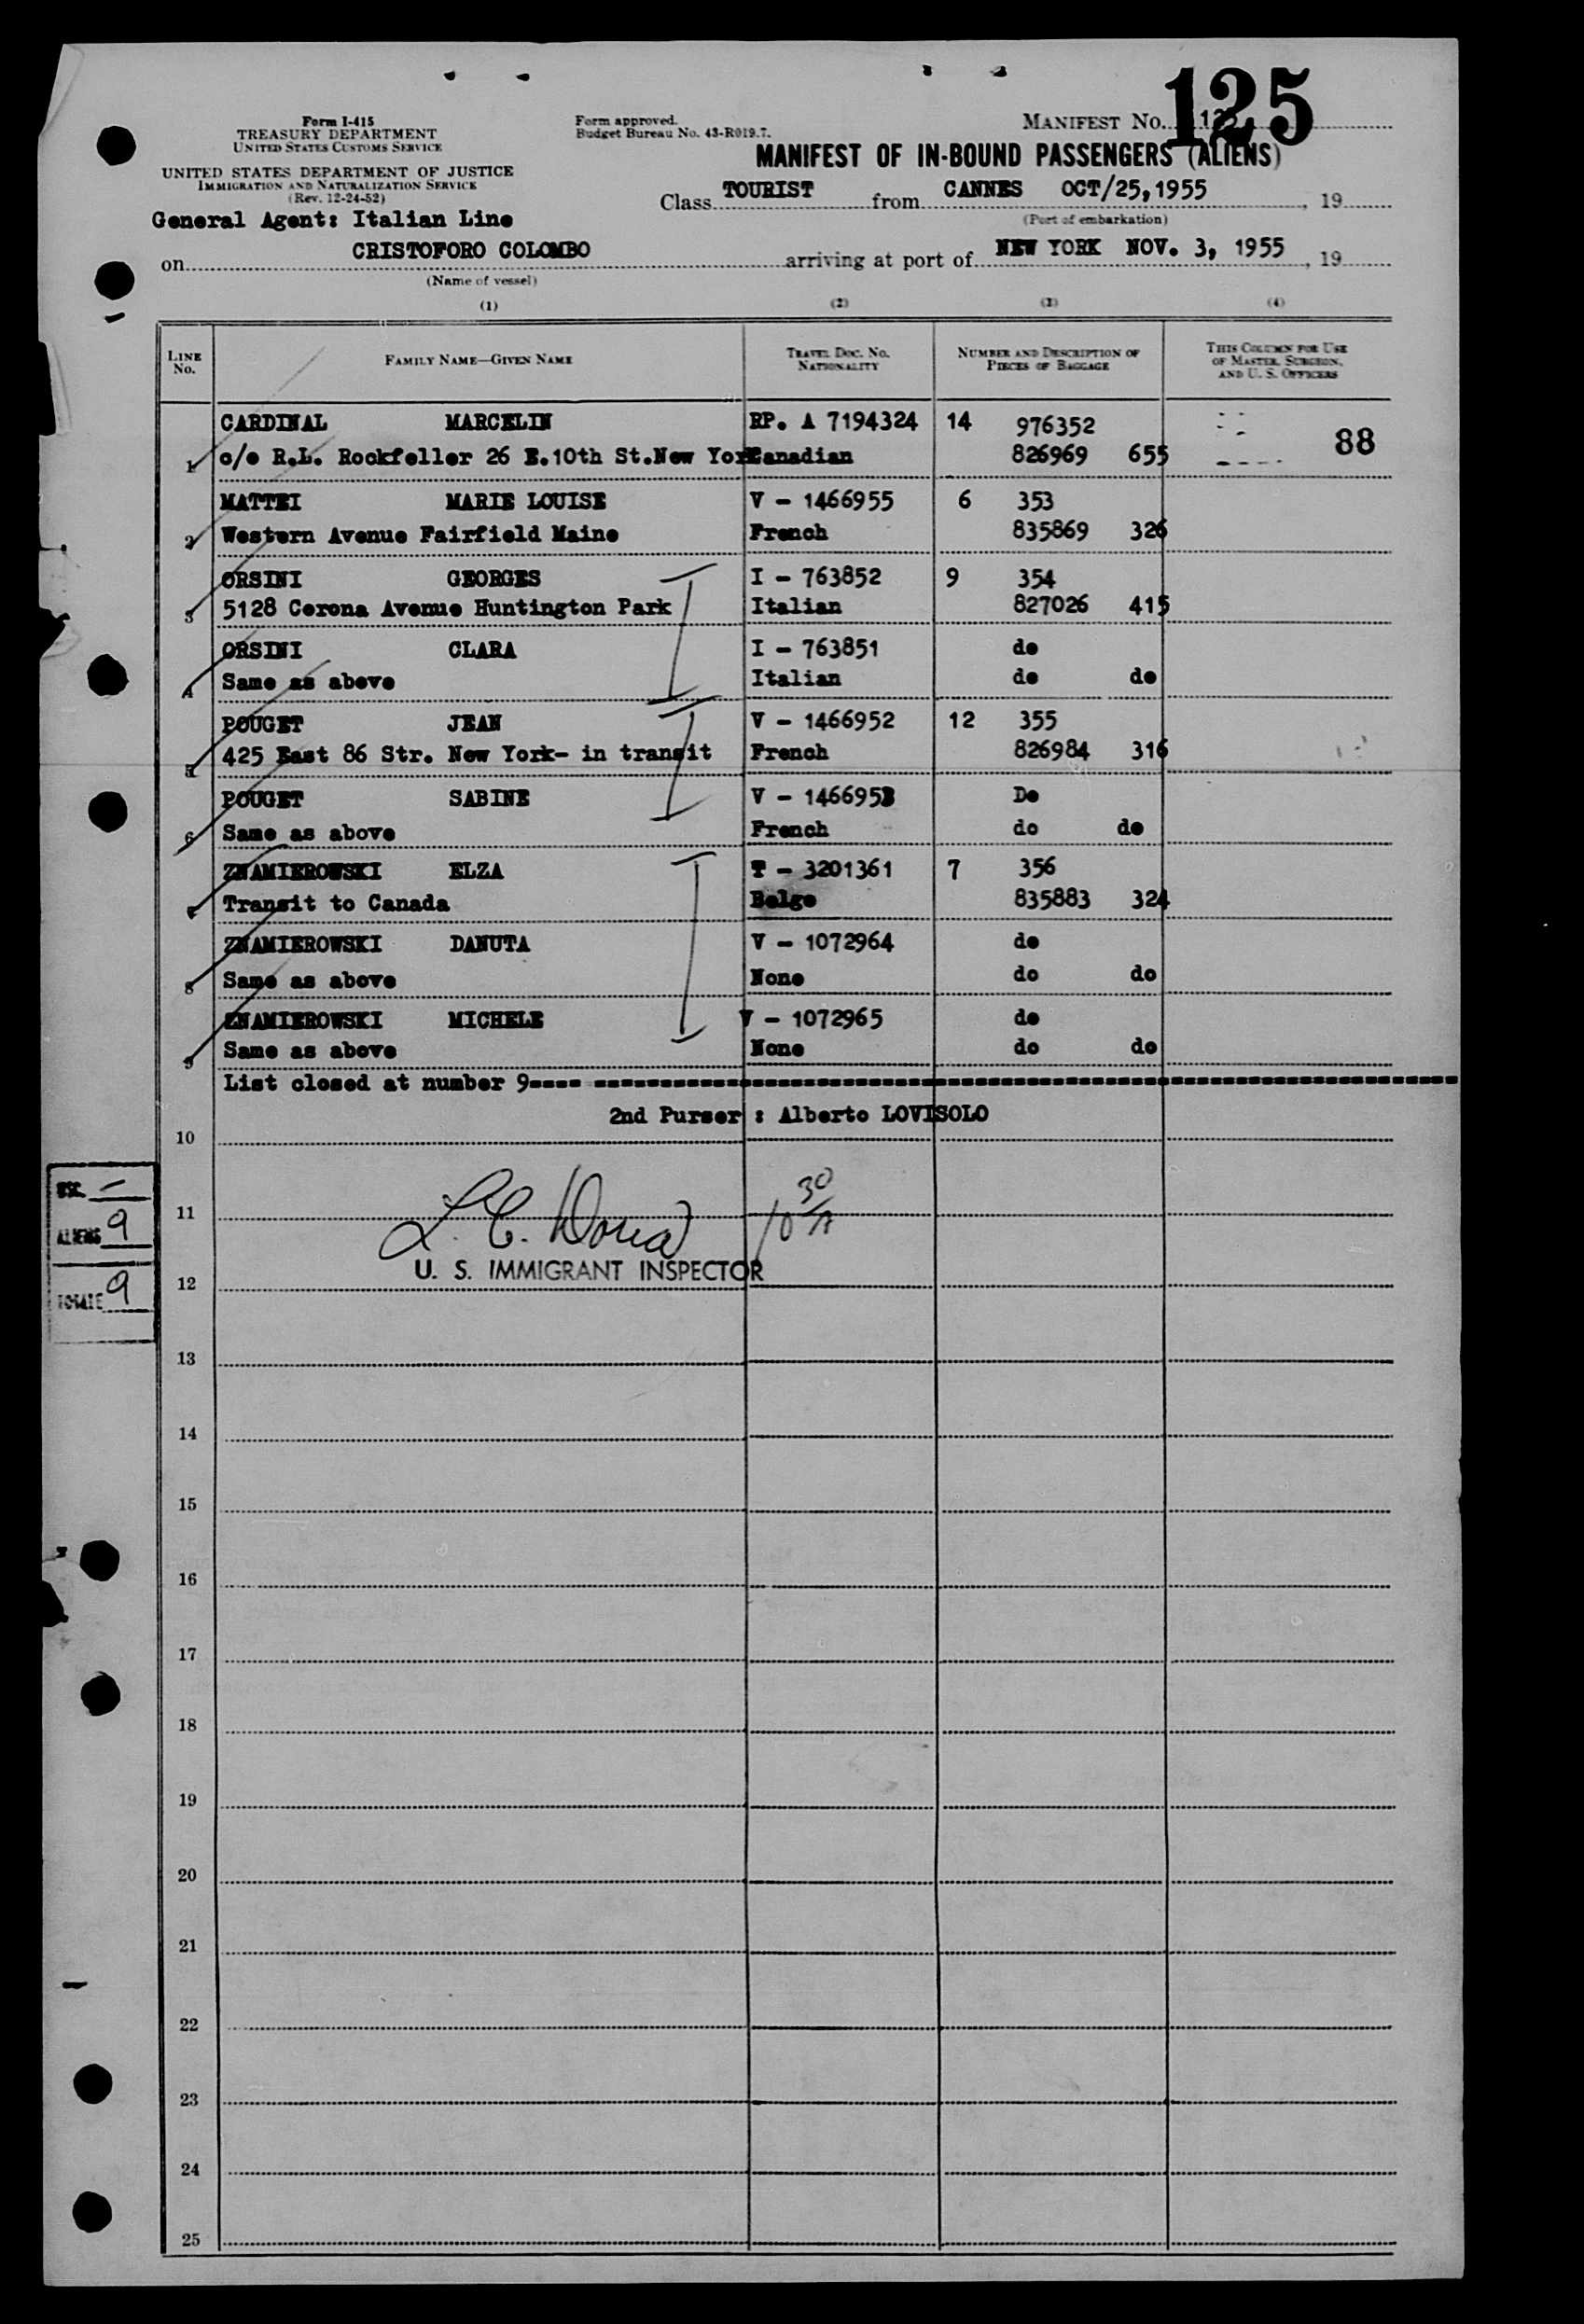 125
Form I-415
TREASURY DEPARTMENT
UNITED STATES CUSTOMS SERVICE
Form approved.
Budget Bureau No. 43-R019.7.
MANIFEST No.
UNITED STATES DEPARTMENT OF JUSTICE
IMMIGRATION AND NATURALIZATION SERVICE
(Rev. 12-24-52)
MANIFEST OF IN-BOUND PASSENGERS (ALIENS)
Class TOURIST from CANNES OCT/25,1955, 19
(Port of embarkation)
General Agent: Italian Line
on CRISTOFORO COLOMBO arriving at port of NEW YORK NOV. 3, 1955, 19
(Name of vessel)
(1) (2) (3) (4)
LINE No. FAMILY NAME—GIVEN NAME TRAVEL DOC. No. NATIONALITY NUMBER AND DESCRIPTION OF PIECES OF BAGGAGE THIS COLUMN FOR USE OF MASTER, SURGEON, AND U. S. OFFICERS
CARDINAL MARCELIN RP. A 7194324 14 976352 88
1 c/o R.L. Rockfeller 26 E.10th St.New York Canadian 826969 655
MATTEI MARIE LOUISE V - 1466955 6 353
2 Western Avenue Fairfield Maine French 835869 326
ORSINI GEORGES I - 763852 9 354
3 5128 Corona Avenue Huntington Park Italian 827026 415
ORSINI CLARA I - 763851 do
4 Same as above Italian do do
POUGET JEAN V - 1466952 12 355
5 425 East 86 Str. New York- in transit French 826984 316
POUGET SABINE V - 1466953 Do
6 Same as above French do do
ZNAMIEROWSKI ELZA T - 3201361 7 356
7 Transit to Canada Belge 835883 324
ZNAMIEROWSKI DANUTA V - 1072964 do
8 Same as above None do do
ZNAMIEROWSKI MICHELE V - 1072965 do
9 Same as above None do do
List closed at number 9----
2nd Purser : Alberto LOVISOLO
10
USC. —
11
ALIENS 9
L. E.
10 30/A
U. S. IMMIGRANT INSPECTOR
12
TOTAL 9
13
14
15
16
17
18
19
20
21
22
23
24
25